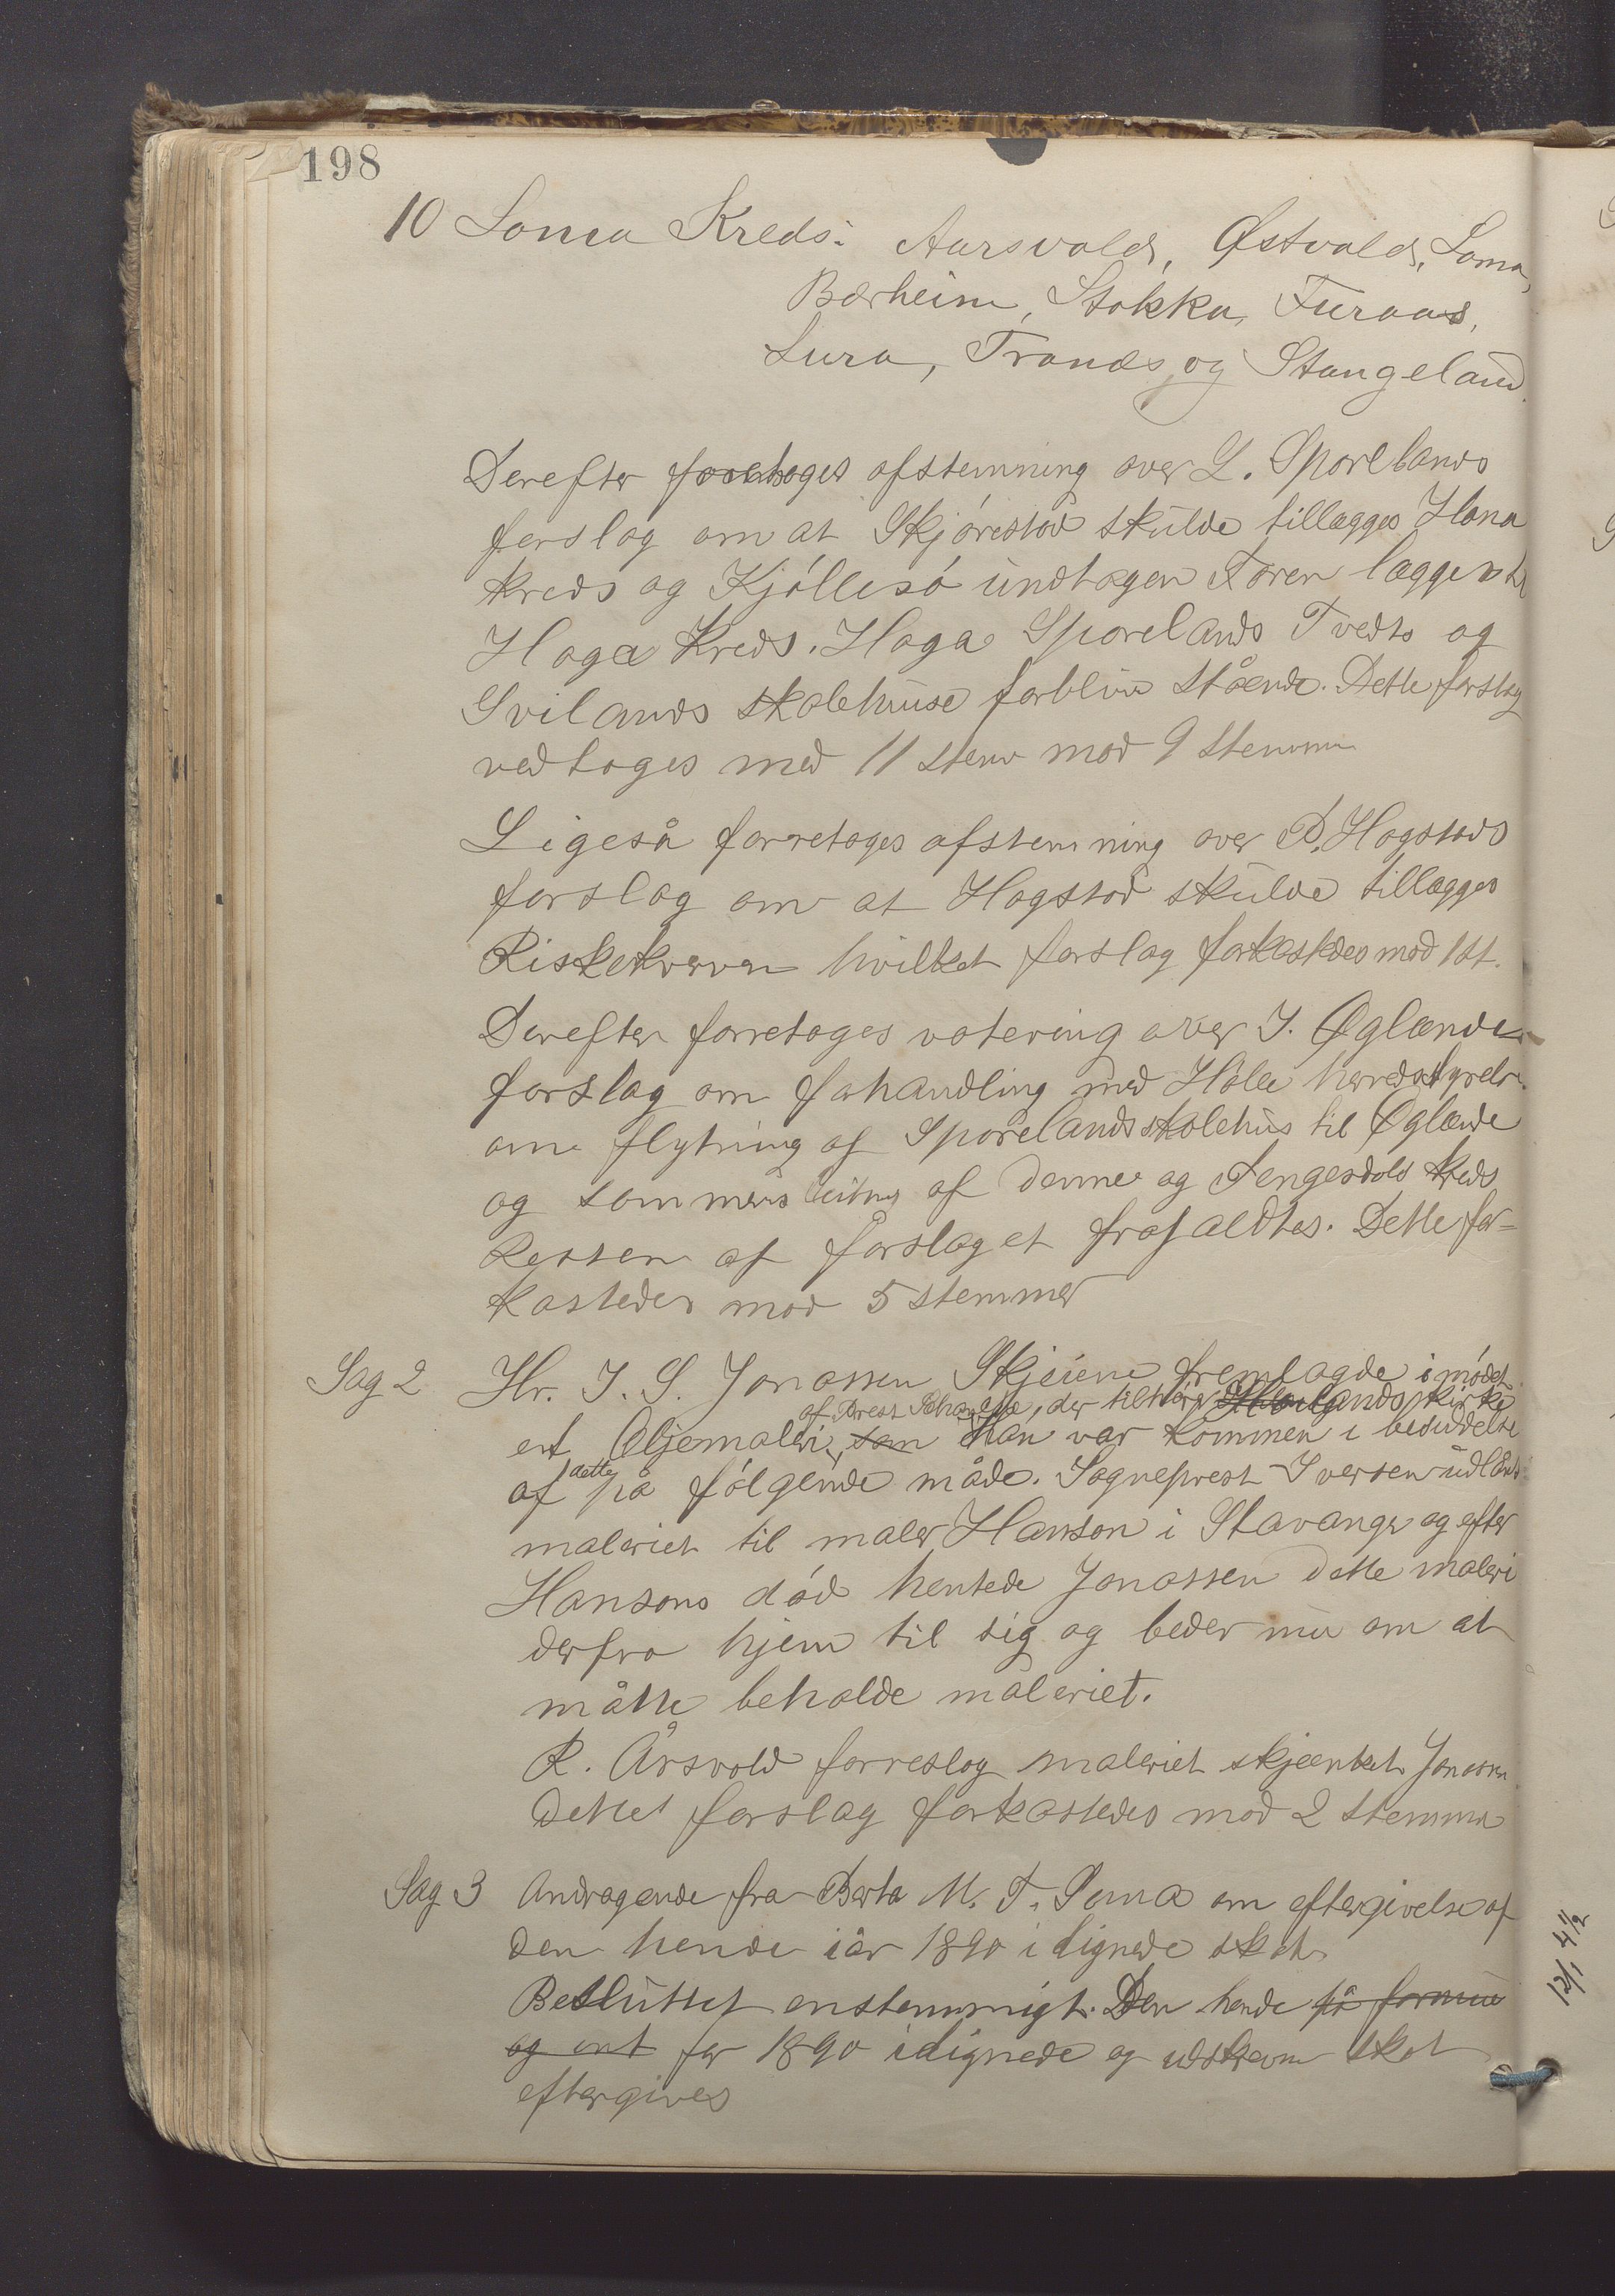 198
10 Soma Kreds: Aarsvold, Østvold, Soma,
Bærheim, Stokka, Furaas,
Lura, Tronds og Stangeland.
Derefter foretoges afstemning over L. Sporelands
forslag om at Skjórestad skulde tillægges Hana
kreds og Kjóllesó undtagen Foren lægges til
Hoga Kreds. Hoga Sporelands Tvedts og
Svilands skolehuse forblive stående. Dette forslag
vedtoges med 11 stem mod 9 stemmer
Ligeså forretoges afstemning over P. Hogstads
forslag om at Hogstad skulde tillægges
Riskekverven hvilket forslag forkastedes mod 1 st.
Derefter forretoges votering over J. Øglænds
forslag om forhandling med Høle herredsstyrelse
om flytning af Sporelands skolehus til Øglænde
og sammenslutning af denne og Sengesdals kreds
Resten af forslaget frafaldtes. Dette for=
kastedes mod 5 stemmer
Sag 2 Hr. J. S. Jonassen Skjeiene fremlagde i mødet
af Prest, der tilhører Hóilands kirke
ent Oljemaleri, som han var kommen i besiddelse
af dette på fólgende måde. Sogneprest Iversen udlånte
maleriet til maler Hanson i Stavanger og efter
Hansons dód hentede Jonassen dette maleri
derfra hjem til sig og beder nu om at
måtte beholde maleriet.
R. Årsvold forreslog maleriet skjænket Jonassen.
Dettet forslag forkastedes mod 2 stemmer
Sag 3 Andragende fra Berta M. T. Soma om eftergivelse af
den hende iår 1890 ilignede skat
Besluttet enstemmigt. Den hende på formue
og int for 1890 ilignede og udskrevne skat
eftergives
12/1 4 1/2